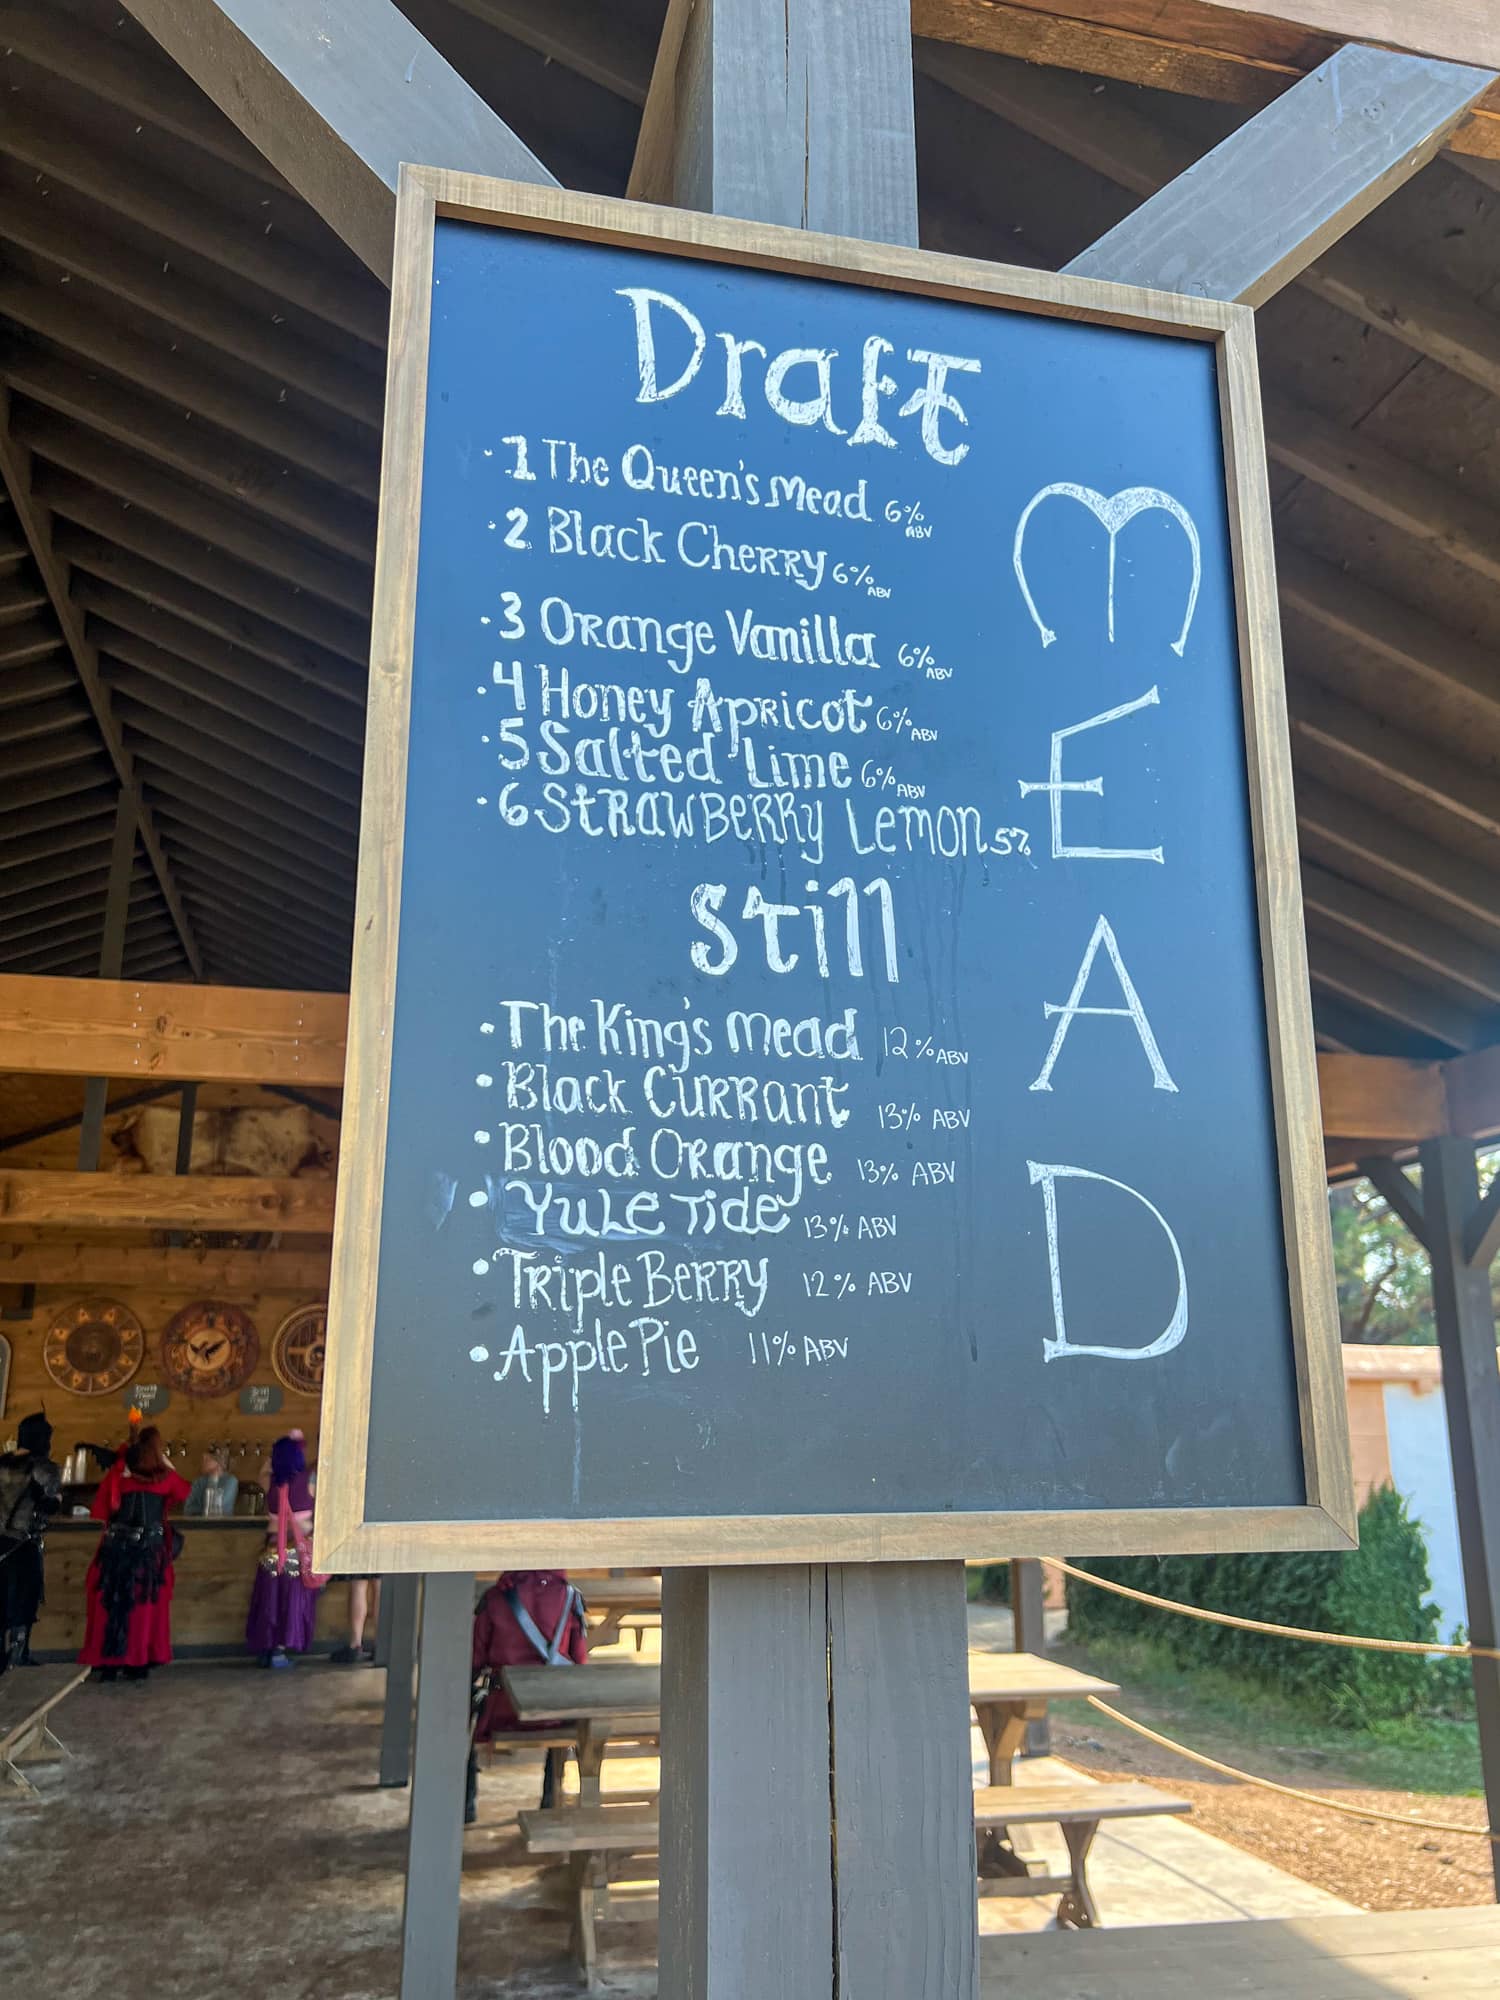 Draft
·1 The Queen's Mead 6% ABV
·2 Black Cherry 6% ABV
·3 Orange Vanilla 6% ABV
·4 Honey Apricot 6% ABV
·5 Salted Lime 6% ABV
·6 Strawberry Lemon 5%
Still
·The King's Mead 12% ABV
·Black Currant 13% ABV
·Blood Orange 13% ABV
·Yule Tide 13% ABV
·Triple Berry 12% ABV
·Apple Pie 11% ABV
MEAD